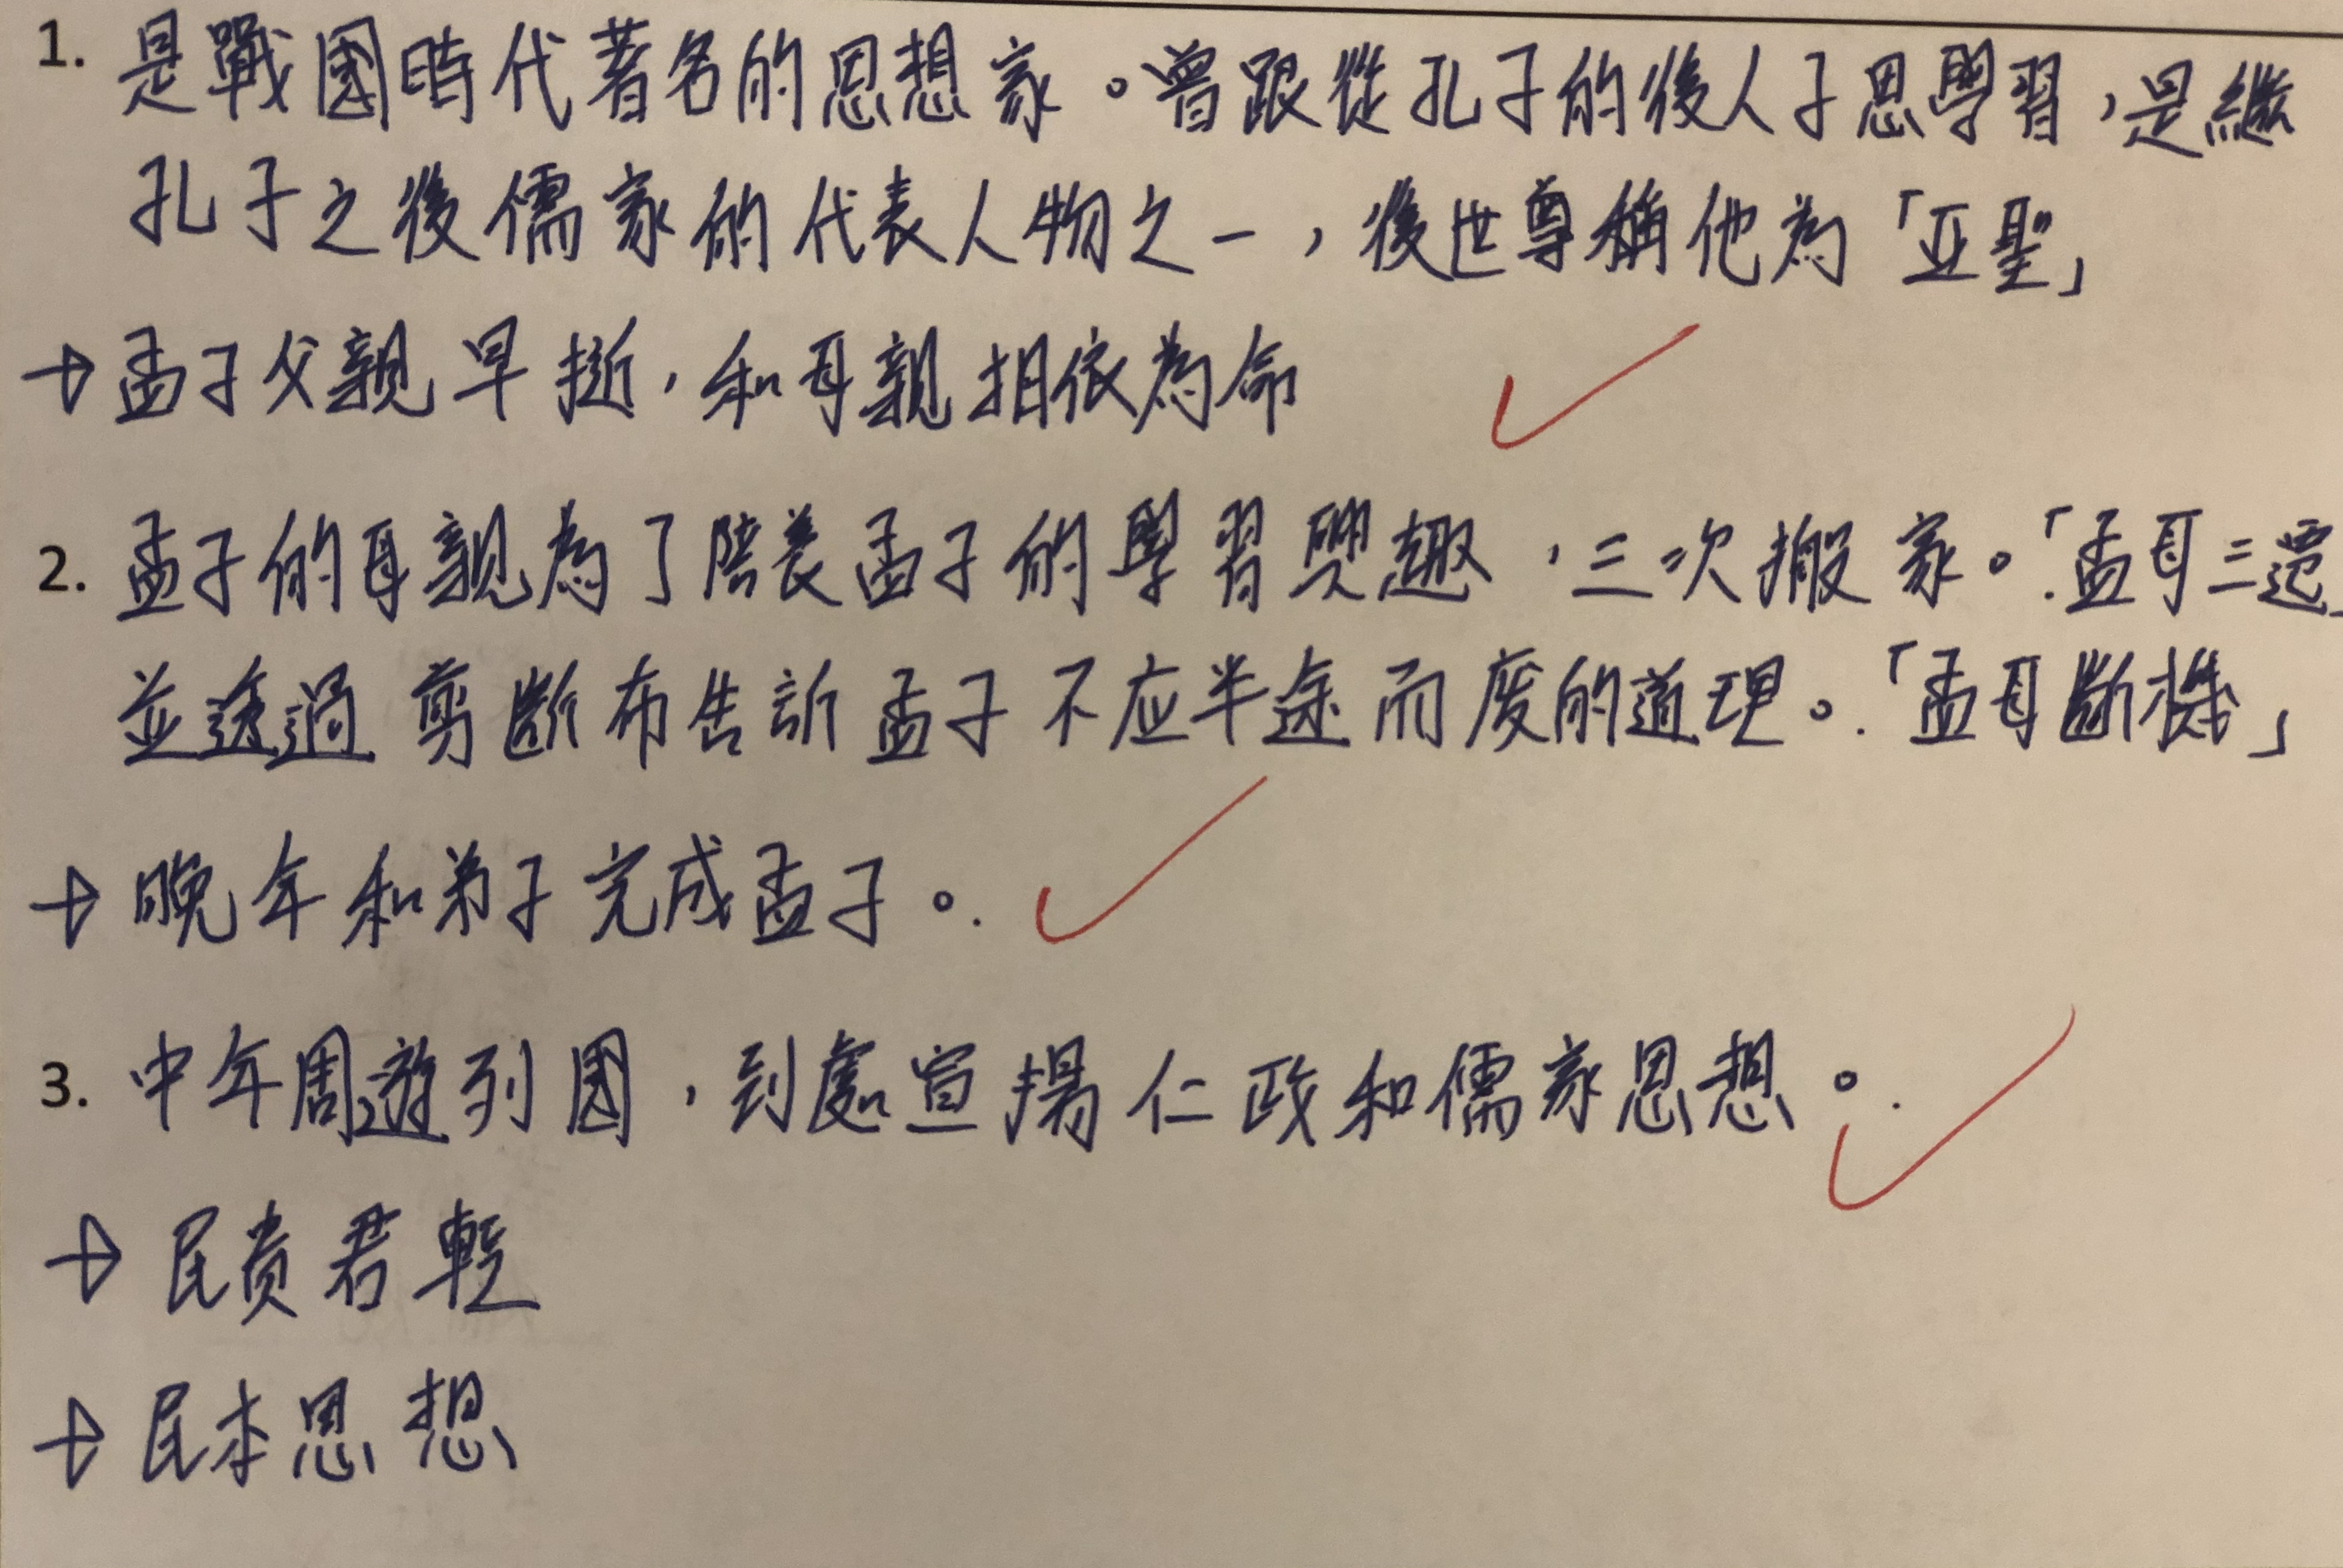 1. 是戰國時代著名的思想家。曾跟從孔子的後人子思學習,是繼
孔子之後儒家的代表人物之一,後世尊稱他為「亞聖」
→孟子父親早逝,和母親相依為命
2. 孟子的母親為了陪養孟子的學習興趣,三次搬家。「孟母三遷」
並透過剪斷布告訴孟子不应半途而废的道理。「孟母斷機」
→晚年和弟子完成孟子。
3. 中年周遊列國,到處宣揚仁政和儒家思想。
→民貴君輕
→民本思想